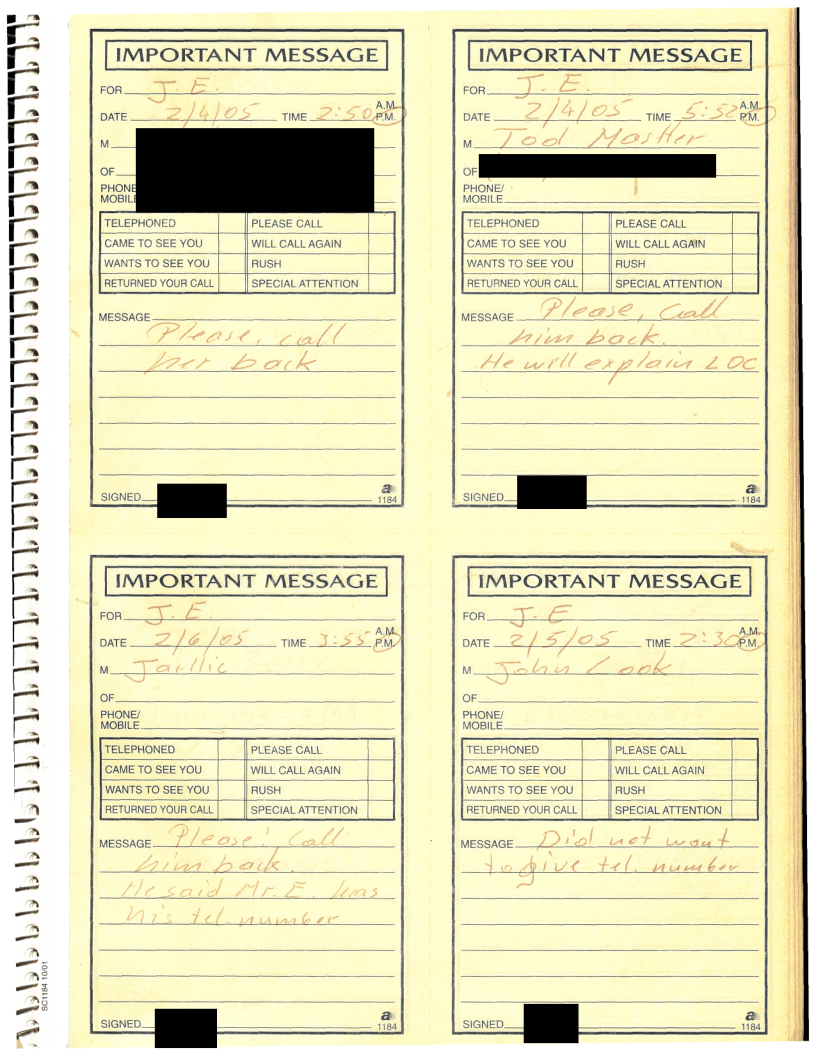 IMPORTANT MESSAGE
FOR J. E.
DATE 2/4/05 TIME 2:50 A.M. P.M.
M
OF
PHONE/
MOBILE
TELEPHONED PLEASE CALL
CAME TO SEE YOU WILL CALL AGAIN
WANTS TO SEE YOU RUSH
RETURNED YOUR CALL SPECIAL ATTENTION
MESSAGE
Please, call
her back
SIGNED
a
1184
IMPORTANT MESSAGE
FOR J. E.
DATE 2/4/05 TIME 5:52 A.M. P.M.
M Tod
OF
PHONE/
MOBILE
TELEPHONED PLEASE CALL
CAME TO SEE YOU WILL CALL AGAIN
WANTS TO SEE YOU RUSH
RETURNED YOUR CALL SPECIAL ATTENTION
MESSAGE Please, Call
him back.
He will explain LOC
SIGNED
a
1184
IMPORTANT MESSAGE
FOR J. E.
DATE 2/6/05 TIME 3:55 A.M. P.M.
M
OF
PHONE/
MOBILE
TELEPHONED PLEASE CALL
CAME TO SEE YOU WILL CALL AGAIN
WANTS TO SEE YOU RUSH
RETURNED YOUR CALL SPECIAL ATTENTION
MESSAGE Please! Call
him back.
He said Mr. E. has
his tel. number
SIGNED
a
1184
IMPORTANT MESSAGE
FOR J. E
DATE 2/5/05 TIME 2:30 A.M. P.M.
M John Look
OF
PHONE/
MOBILE
TELEPHONED PLEASE CALL
CAME TO SEE YOU WILL CALL AGAIN
WANTS TO SEE YOU RUSH
RETURNED YOUR CALL SPECIAL ATTENTION
MESSAGE Did not want
to give tel. number
SIGNED
a
1184
SC1184 10/01